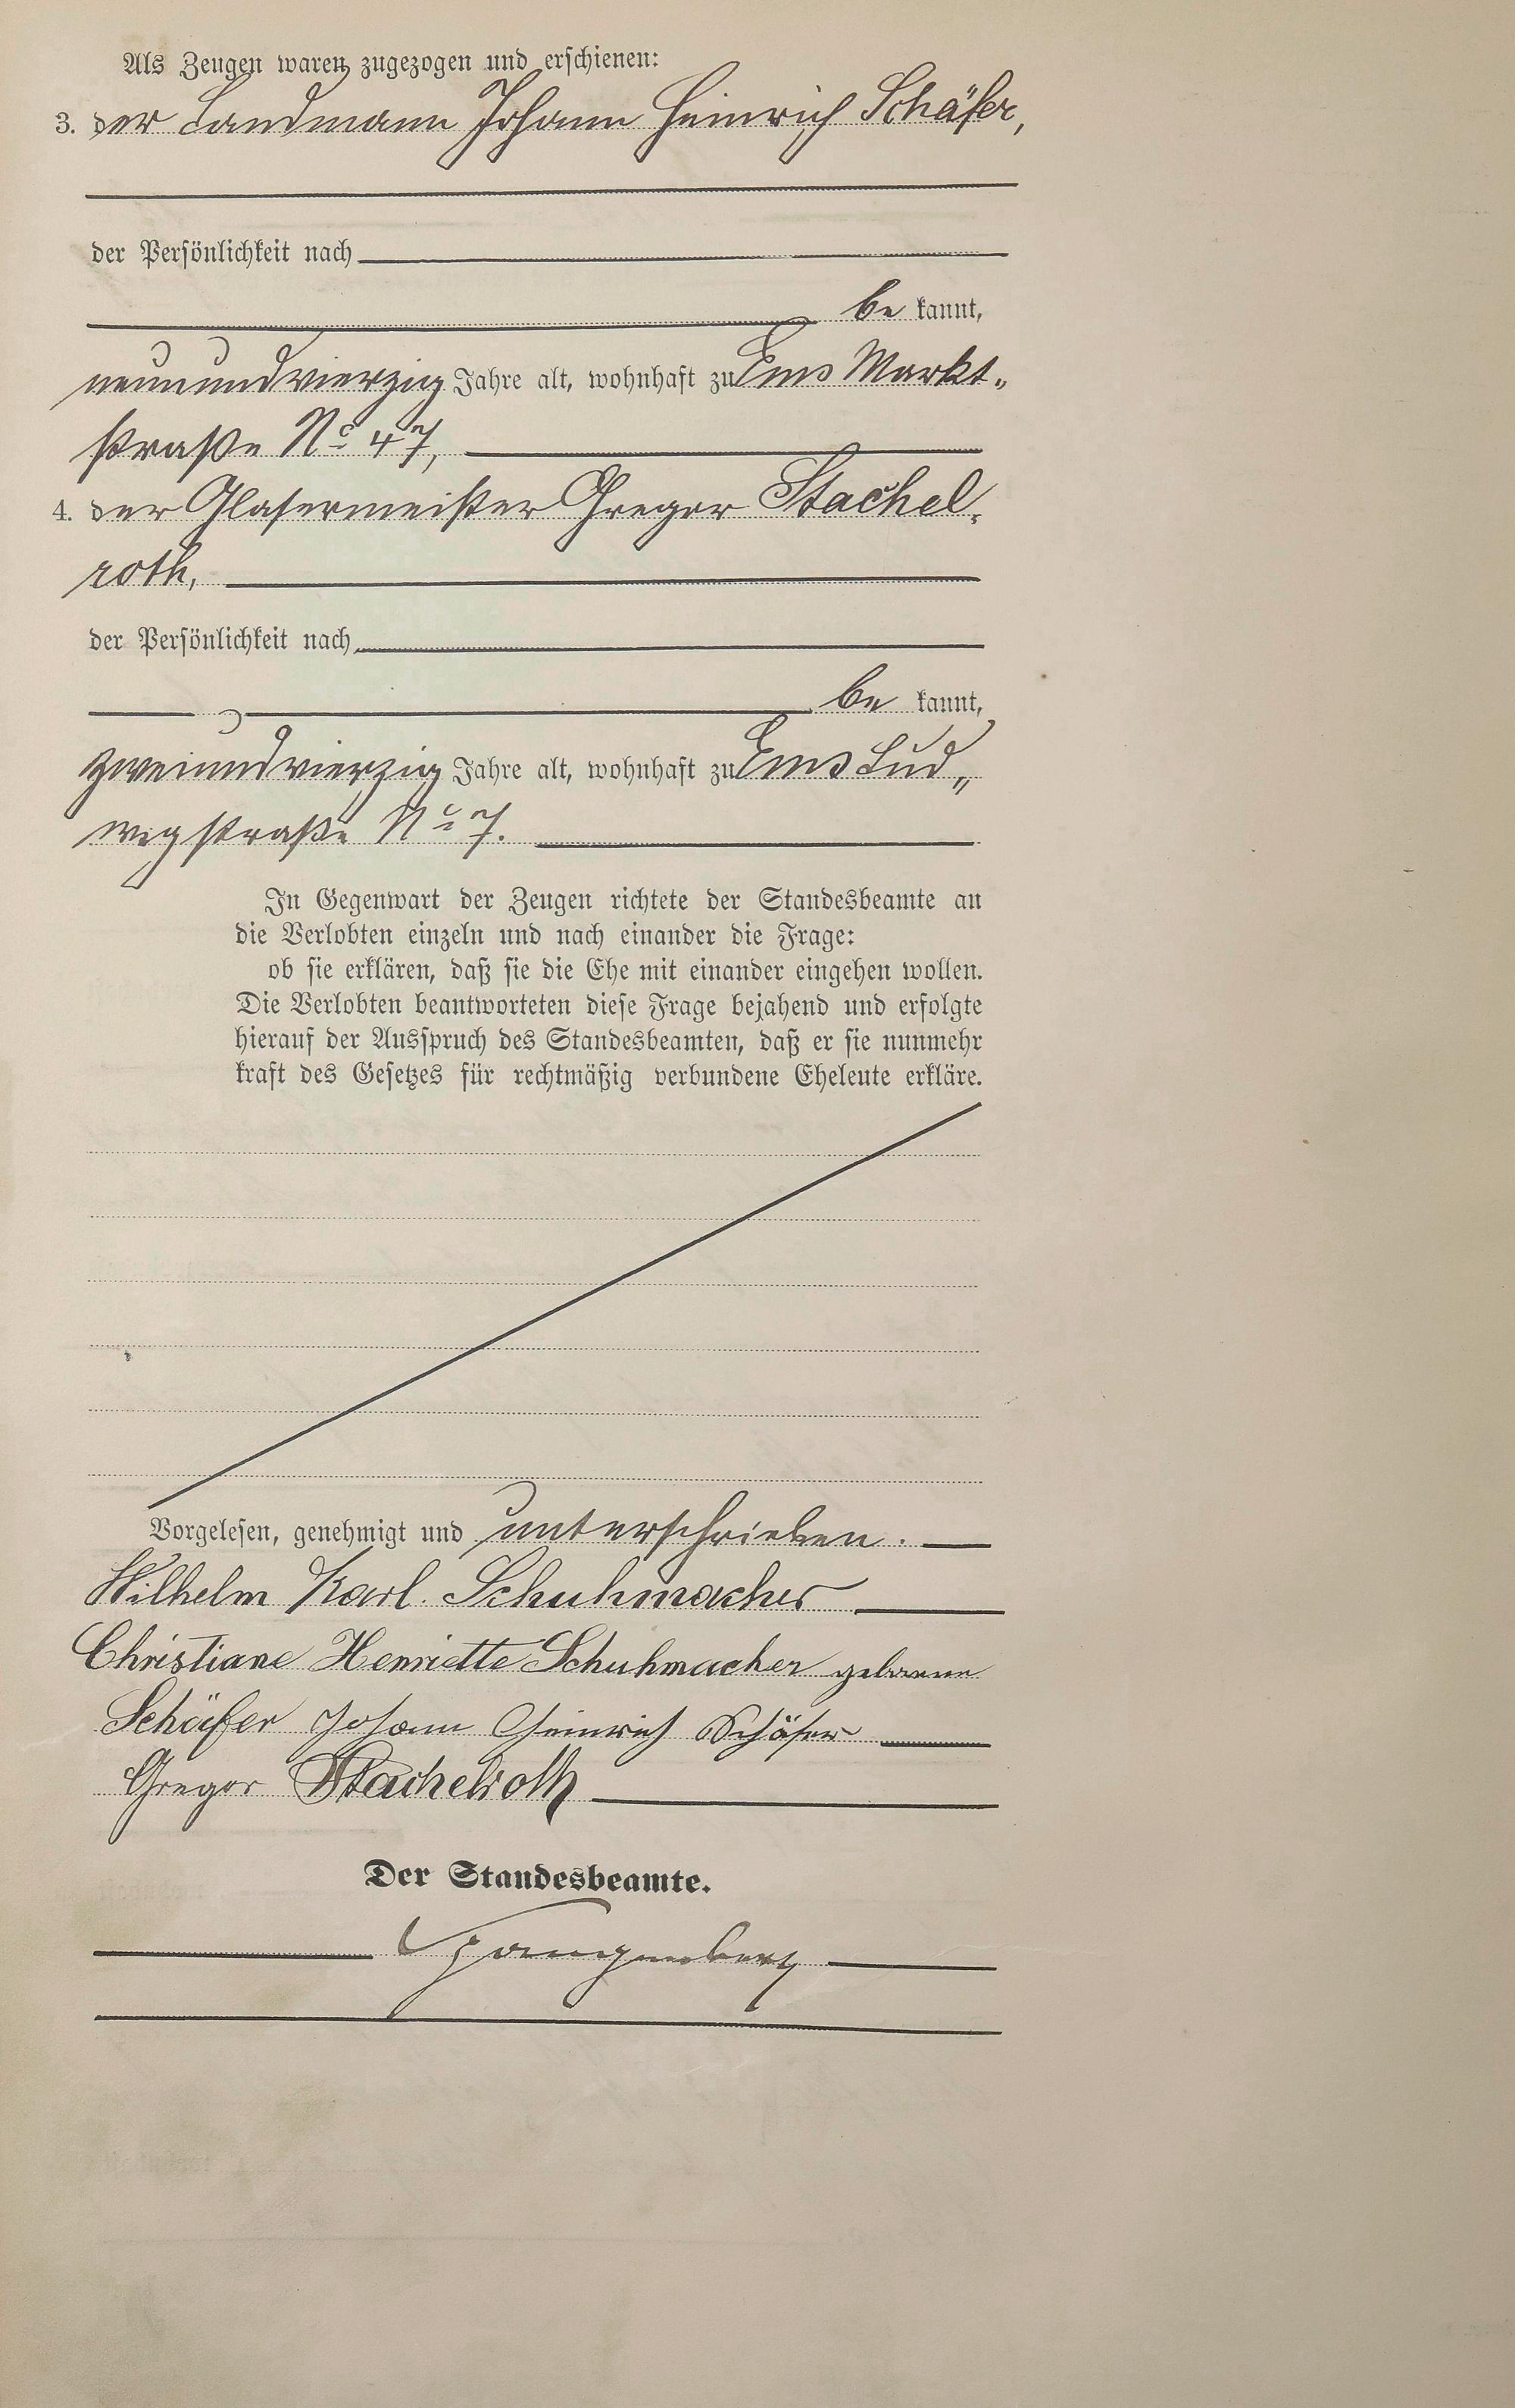 Als Zeugen waren zugezogen und erschienen:
3. der Landmann Johann Heinrich Schäfer,
der Persönlichkeit nach
be kannt,
neunundvierzig Jahre alt, wohnhaft zu Ems Markt„
straße No 47,
4. der Glasermeister Gregor Stachel„
roth,
der Persönlichkeit nach
be kannt,
zweiundvierzig Jahre alt, wohnhaft zu Ems Lud„
wigstraße No 7.
In Gegenwart der Zeugen richtete der Standesbeamte an
die Verlobten einzeln und nach einander die Frage:
ob sie erklären, daß sie die Ehe mit einander eingehen wollen.
Die Verlobten beantworteten diese Frage bejahend und erfolgte
hierauf der Ausspruch des Standesbeamten, daß er sie nunmehr
kraft des Gesetzes für rechtmäßig verbundene Eheleute erkläre.
Vorgelesen, genehmigt und unterschrieben.
Wilhelm Karl. Schuhmacher
Christiane Henriette Schuhmacher geborene
Schäfer Johann Heinrich Schäfer
Gregor Stachelroth
Der Standesbeamte.
Spangenberg